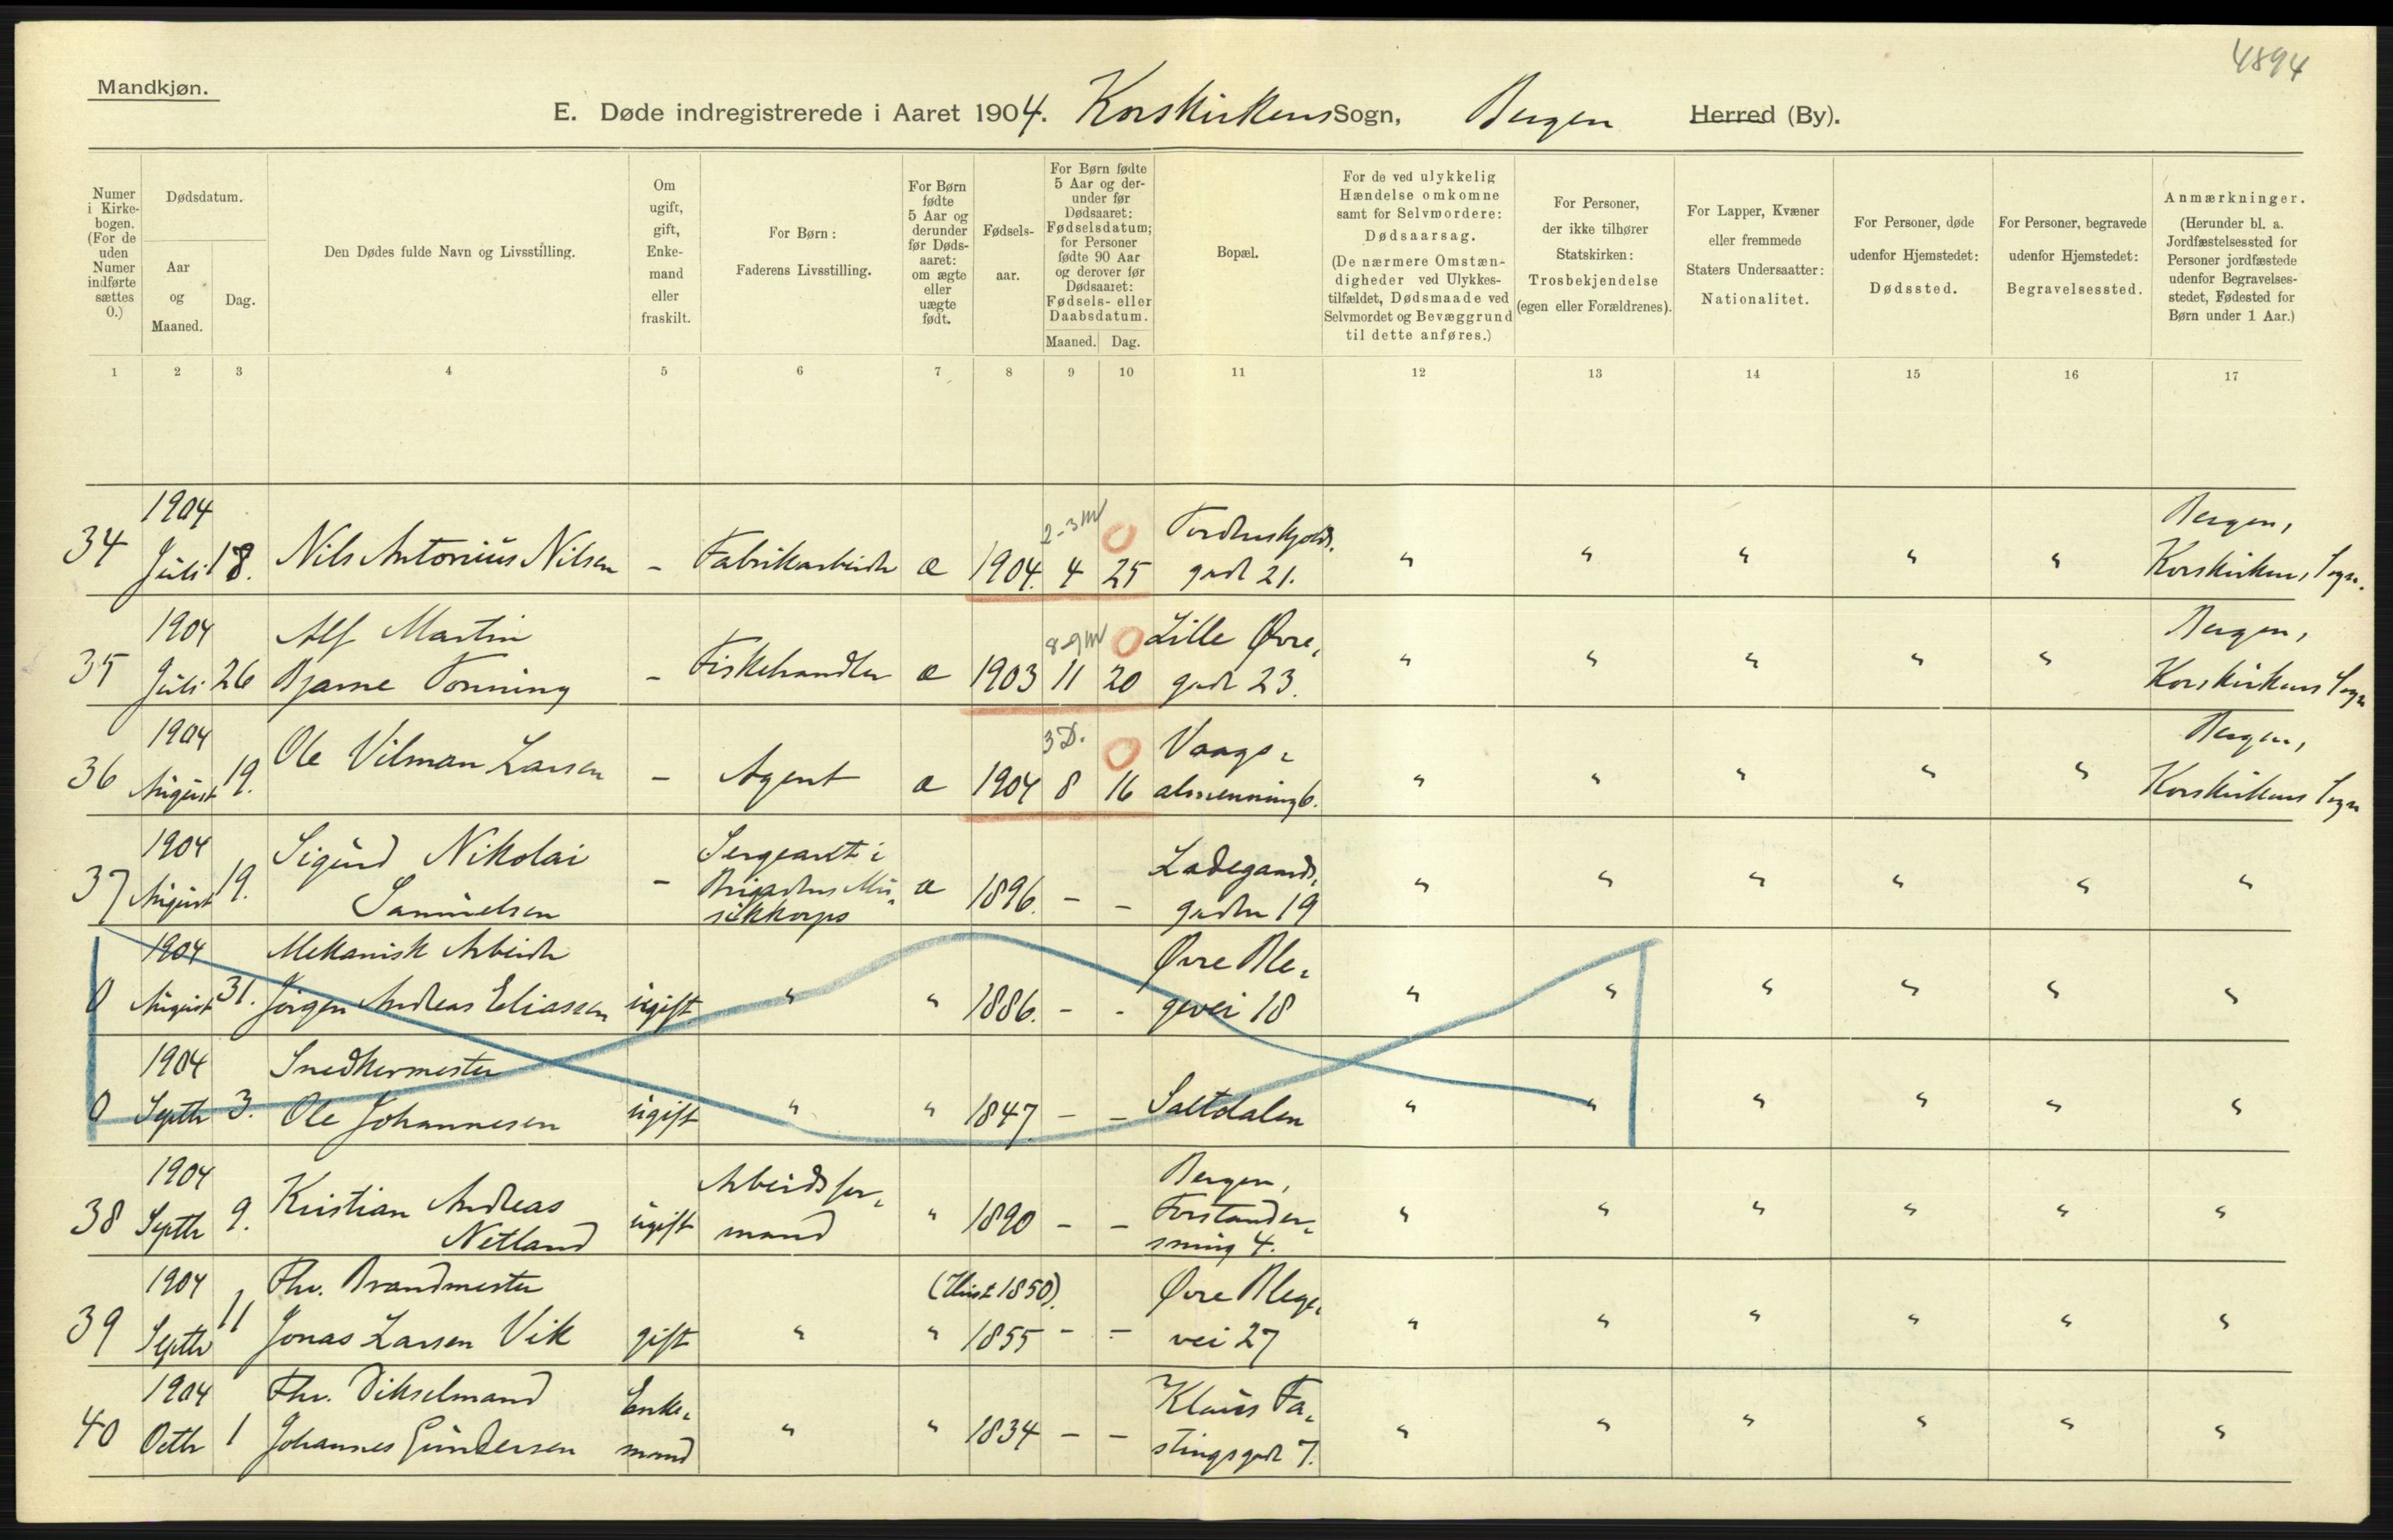 4894
Mandkjøn.
E. Døde indregistrerede i Aaret 1904. Korskirkens Sogn, Bergen Herred (By).
Numer i Kirkebogen. (For de uden Numer indførte sættes 0.)
Dødsdatum.
Aar og Maaned.
Dag.
Den Dødes fulde Navn og Livsstilling.
Om ugift, gift, Enkemand eller fraskilt.
For Børn:
Faderens Livsstilling.
For Børn fødte 5 Aar og derunder før Dødsaaret: om ægte eller uægte født.
Fødselsaar.
For Børn fødte 5 Aar og derunder før Dødsaaret: Fødselsdatum; for Personer fødte 90 Aar og derover før Dødsaaret: Fødsels- eller Daabsdatum.
Maaned. Dag.
Bopæl.
For de ved ulykkelig Hændelse omkomne samt for Selvmordere: Dødsaarsag.
(De nærmere Omstændigheder ved Ulykkestilfældet, Dødsmaade ved Selvmordet og Bevæggrund til dette anføres.)
For Personer, der ikke tilhører Statskirken: Trosbekjendelse (egen eller Forældrenes).
For Lapper, Kvæner eller fremmede Staters Undersaatter: Nationalitet.
For Personer, døde udenfor Hjemstedet: Dødssted.
For Personer, begravede udenfor Hjemstedet: Begravelsessted.
Anmærkninger.
(Herunder bl. a. Jordfæstelsessted for Personer jordfæstede udenfor Begravelsesstedet, Fødested for Børn under 1 Aar.)
1 2 3 4 5 6 7 8 9 10 11 12 13 14 15 16 17
1904 2-3 m 0 Tordenskjolds- Bergen,
34 Juli 18. Nils Antonius Nilsen - Fabrikarbeider æ 1904. 4 25 gade 21. " " " " " Korskirkens Sogn.
1904 Alf Martin 8-9 m 0 Lille Øvre- Bergen,
35 Juli 26 Bjarne Tonning - Fiskehandler æ 1903 11 20 gade 23. " " " " " Korskirkens Sogn
1904 3 D. 0 Vaags- Bergen,
36 August 19. Ole Vilman Larsen - Agent æ 1904 8 16 almenning 6. " " " " " Korskirkens Sogn
1904 Sigurd Nikolai Sergeant i Ladegaards-
37 August 19. Samuelsen - Brigadens Mu- æ 1896. - - gaden 19 " " " " " "
sikkorps
1904 Mekanisk Arbeider Øvre Ble-
0 August 31. Jørgen Andreas Eliassen ugift " " 1886. - - gevei 18 " " " " " "
1904 Snedkermester
0 Septbr 3. Ole Johannesen ugift " " 1847 - - Saltdalen " " " " " "
1904 Kristian Andreas Arbeidsfor- Bergen,
38 Septbr 9. Netland ugift mand " 1890 - - Forstander- " " " " " "
smug 4.
1904 Fhv. Brandmester (1850). Øvre Blege-
39 Septbr 11 Jonas Larsen Vik gift " " 1855 - - vei 27 " " " " " "
1904 Fhv. Dikselmand Enke- Klaus Fa-
40 Octbr 1 Johannes Gundersen mand " " 1834 - - stingsgade 7. " " " " " "